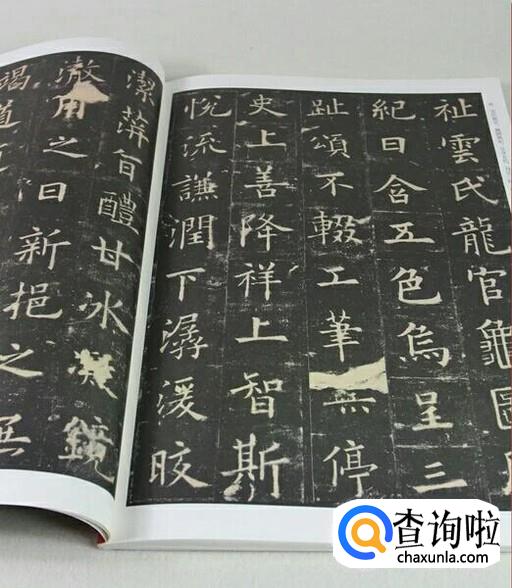 祉雲氏龍官龜圖
紀日含五色烏呈三
趾頌不輟工筆無停
史上善降祥上智斯
悅流謙潤下潺湲皎
潔蓱旨醴甘冰凝鏡
澈用之日新挹之無
竭道
查询啦
chaxunla.com